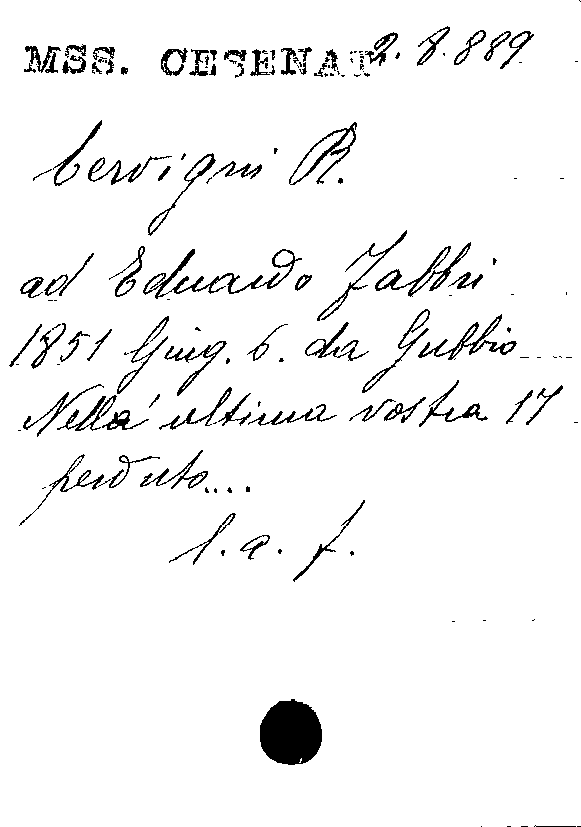 MSS. CESENAT 2.8.889
Cervigni R.
ad Eduardo Fabbri
1851 Giug. 6. da Gubbio
Nella ultima vostra 17
perduto....
l. a. f.